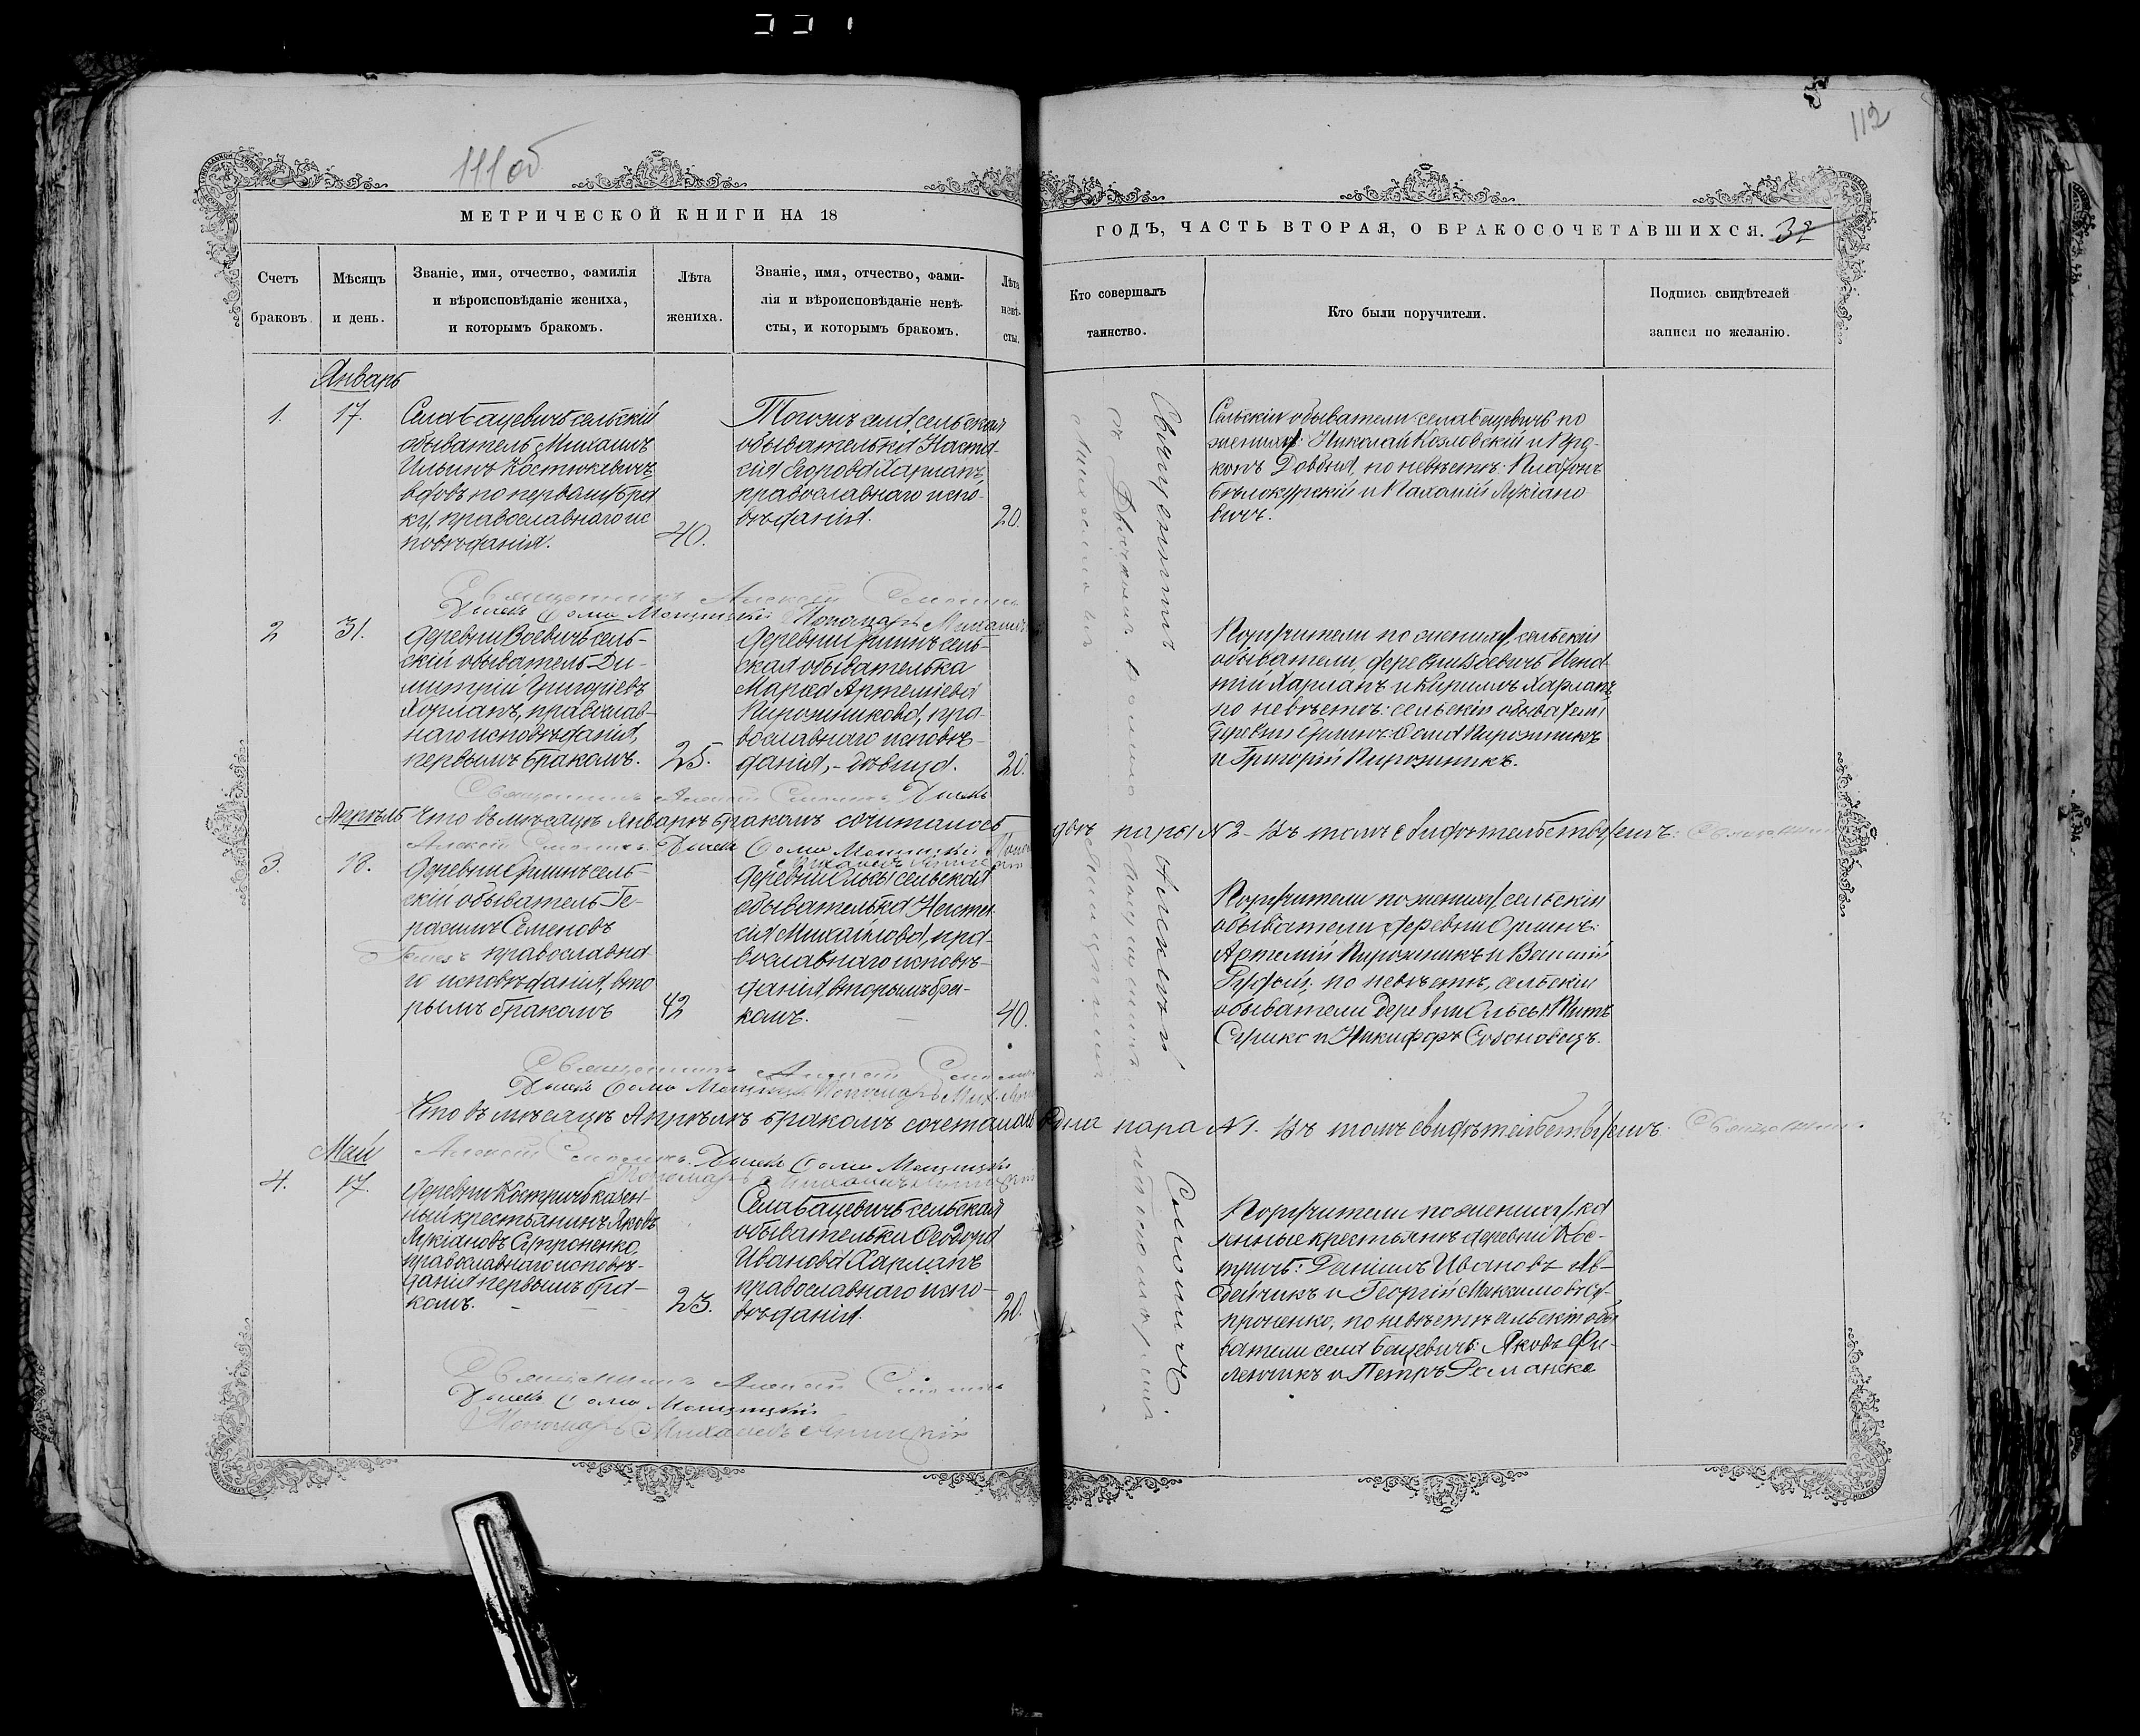 111 об
112
МЕТРИЧЕСКОЙ КНИГИ НА 18
ГОДЪ, ЧАСТЬ ВТОРАЯ, О БРАКОСОЧЕТАВШИХСЯ. 32
Счетъ
браковъ.
Мѣсяцъ
и день.
Званіе, имя, отчество, фамилія
и вѣроисповѣданіе жениха,
и которымъ бракомъ.
Лѣта
жениха.
Званіе, имя, отчество, фами-
лія и вѣроисповѣданіе невѣ-
сты, и которымъ бракомъ.
Лѣта
невѣ-
сты.
Кто совершалъ
таинство.
Кто были поручители.
Подпись свидѣтелей
записи по желанію.
Январь
1.
17.
Села Бацевичъ сельскій
обыватель Михаилъ
Ильинъ Костюкевичъ,
вдовъ по первому бра
ку, православнаго ис
повѣданія.
40.
Тогожъ села, сельская
обывателька Наста-
сія Егорова Харлапъ,
православнаго испо-
вѣданія.
20.
Сельскіи обыватели села Бацевичъ по
жениху: Николай Козловскій и
Довбня, по невѣстѣ: Платонъ
Бѣлокурскій и Пахомій Лукіано
вичъ.
Священникъ Алексей
Дьячекъ Фома Мощицкій Пономарь Михаилъ
2
31.
Деревни Воевичъ сель-
скій обыватель Ди-
митрій Григоріевъ
Харлапъ, православ-
наго исповѣданія,
первымъ бракомъ.
25.
Деревни сель-
ская обывателька
Марфа Артеміева
Пирожникова, пра-
вославнаго исповѣ-
данія, - дѣвица.
20.
Поручители по жениху, сельскіи
обыватели, деревни Воевичъ Игна-
тій Харлапъ и Кириллъ Харлапъ,
по невѣстѣ: сельскіи обыватели
деревни Фома Пирожникъ
и Григорій Пирожникъ.
Священникъ Алексей Дьячекъ
Апрѣль Что въ мѣсяцѣ Январѣ бракомъ сочиталось двѣ пары № 2 - Въ томъ свидѣтельствуемъ: Священникъ
Алексей Дьячекъ Фома Мощицкій
3.
18.
Деревни сель-
скій обыватель Ге-
расимъ Семеновъ
православна
го исповѣданія, вто
рымъ бракомъ
42
Деревни Ольсы сельская
обывателька Настас-
сія Михайлова, пра-
вославнаго исповѣ-
данія, вторымъ бра-
комъ.
40.
Поручители по жениху, сельскіи
обыватели деревни
Артемій Пирожникъ и Василій
по невѣстѣ, сельскіи
обыватели деревни Ольсы: Титъ
и Никифоръ
Священникъ Алексей
Дьячекъ Фома Мощицкій Пономарь Мих.
Что въ мѣсяцѣ Апрѣлѣ бракомъ сочеталась одна пара № 1. Въ томъ свидѣтельствуемъ: Священникъ
Май
Алексей Дьячекъ Фома Мощицкій
Пономарь Михаилъ
4.
17.
Деревни Костричъ казен-
ный крестьянинъ Яковъ
Лукіановъ Супроненко,
православнаго исповѣ-
данія первымъ бра-
комъ.
23.
Села Бацевичъ сельская
обывателька Ѳеодора
Иванова Харлапъ
православнаго испо-
вѣданія.
20.
Поручители по жениху, ка
зенные крестьяне деревни Кос-
тричъ: Даніилъ Ивановъ Ав-
дейчикъ и Георгій Максимовъ Су-
проненко, по невѣстѣ сельскіи обы
ватели села Бацевичъ: Яковъ Фи-
ленчикъ и Петръ Романско
Священникъ Алексей
Дьячекъ Фома Мощицкій
Пономарь Михаилъ
Священникъ Алексѣй